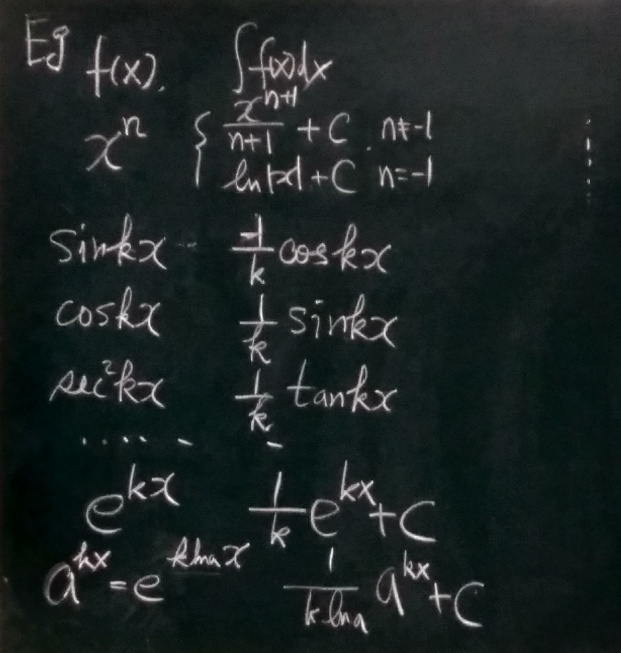 Eg f(x). ∫f(x)dx
xⁿ { xⁿ⁺¹/n+1 + C . n≠-1
ln|x| + C n=-1
sinkx -1/k coskx
coskx 1/k sinkx
sec²kx 1/k tankx
e^kx 1/k e^kx + C
a^kx = e^klnax 1/klna a^kx + C